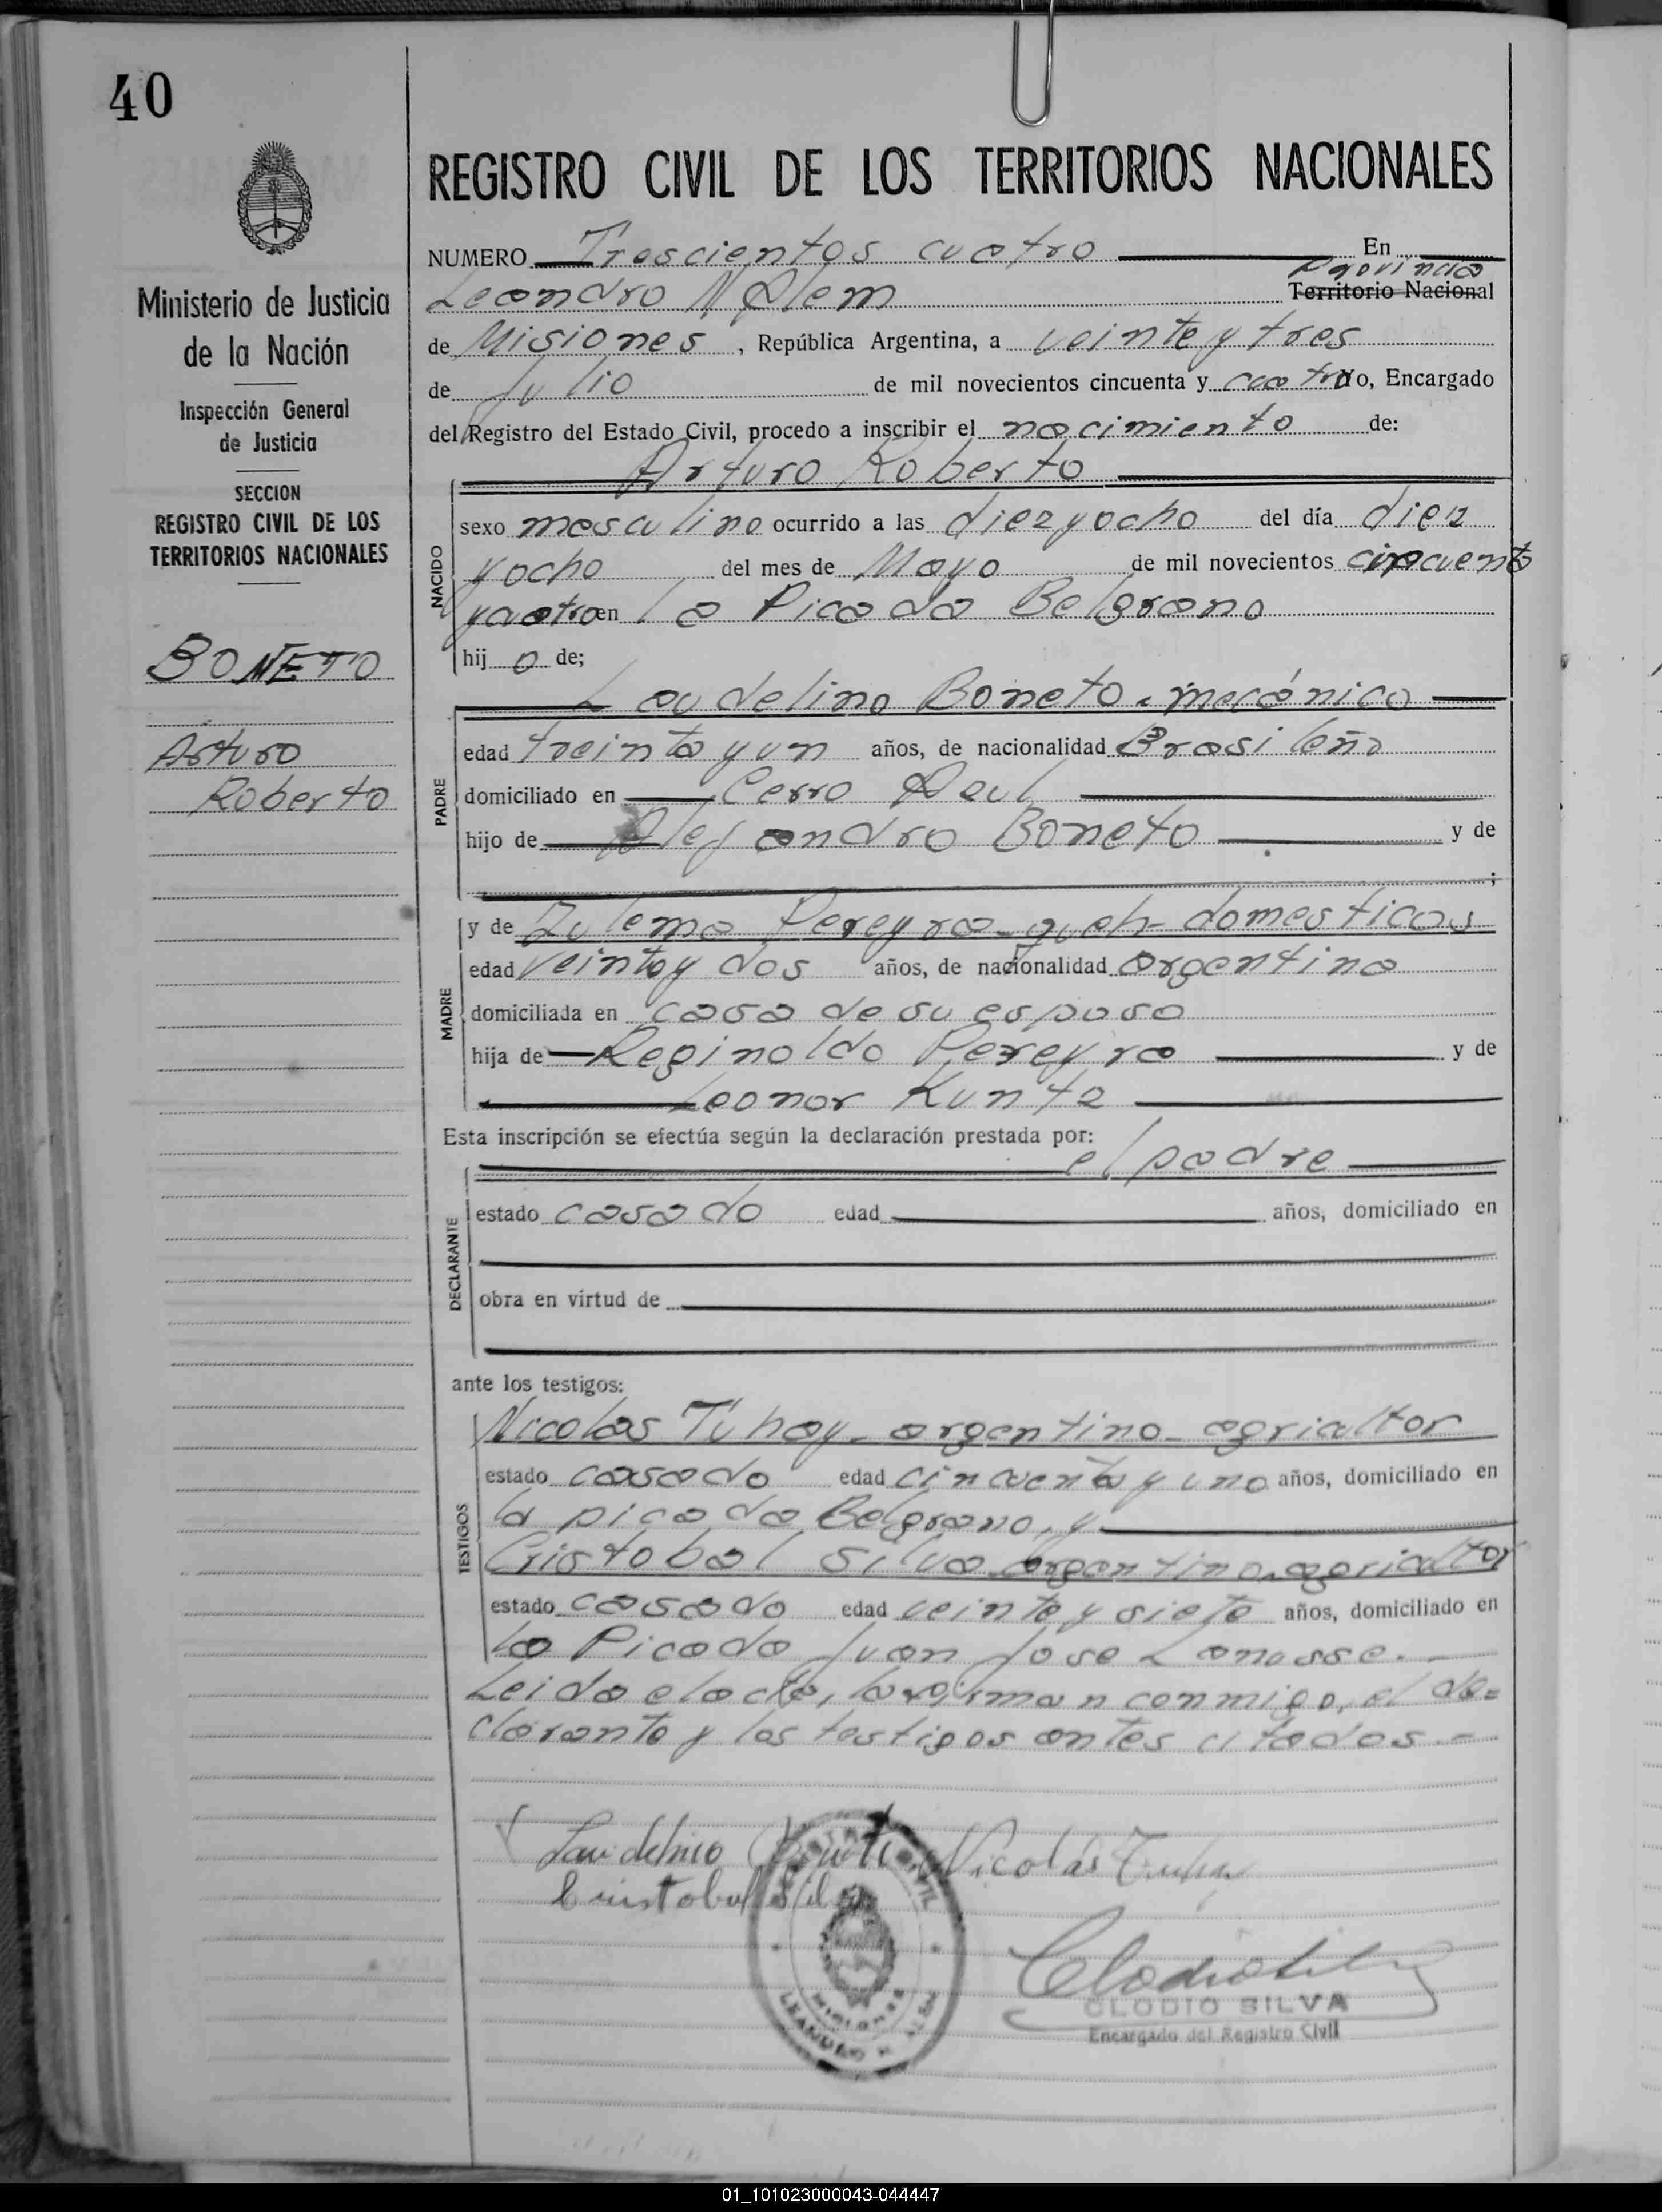 40
Ministerio de Justicia
de la Nación
Inspección General
de Justicia
SECCION
REGISTRO CIVIL DE LOS
TERRITORIOS NACIONALES
BONETO
Arturo
Roberto
REGISTRO CIVIL DE LOS TERRITORIOS NACIONALES
NUMERO Trescientos cuatro En
Provincia
Leandro N Alem Territorio Nacional
de Misiones, República Argentina, a veinte y tres
de Julio de mil novecientos cincuenta y cuatro, Encargado
del Registro del Estado Civil, procedo a inscribir el nacimiento de:
Arturo Roberto
NACIDO
sexo masculino ocurrido a las diez y ocho del día diez
y ocho del mes de Mayo de mil novecientos cincuenta
y cuatro en la Picada Belgrano
hij o de;
Laudelino Boneto - mecánico
PADRE
edad treinta y un años, de nacionalidad Brasileña
domiciliado en Cerro Azul
hijo de Alejandro Boneto y de
;
MADRE
y de Zulema Pereyra - queh- domesticos
edad veinte y dos años, de nacionalidad argentina
domiciliada en casa de su esposo
hija de Reginaldo Pereyra y de
Leonor Kuntz
Esta inscripción se efectúa según la declaración prestada por:
el padre
DECLARANTE
estado casado edad años, domiciliado en
obra en virtud de
ante los testigos:
TESTIGOS
Nicolas Tuhay - argentino - agricultor
estado casado edad cincuenta y uno años, domiciliado en
la picada Belgrano, y
Cristobal Silva argentino - agricultor
estado casado edad veinte y siete años, domiciliado en
la Picada Juan Jose Lanusse. -
Leida el acta, la firman conmigo, el de=
clarante y los testigos antes citados. -
Laudelino Boneto Nicolás Tuhay
Cristobal Silva
REGISTRO CIVIL
MISIONES
LEANDRO N ALEM
Clodio Silva
CLODIO SILVA
Encargado del Registro Civil
01_101023000043-044447